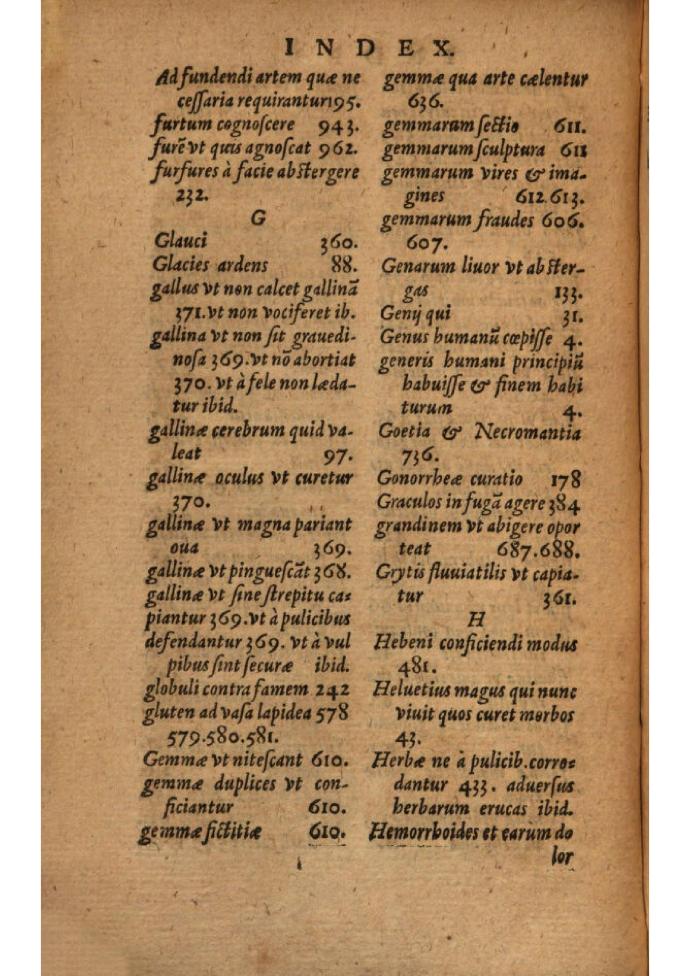 INDEX.
Ad fundendi artem quæ ne
ceſſaria requirantur 195.
furtum cognoſcere 943.
furē vt quis agnoſcat 962.
furfures à facie abſtergere
232.
G
Glauci 360.
Glacies ardens 88.
gallus vt non calcet gallinā
371. vt non vociferet ib.
gallina vt non ſit grauedi-
noſa 369. vt nō abortiat
370. vt à fele non læda-
tur ibid.
gallinæ cerebrum quid va-
leat 97.
gallinæ oculus vt curetur
370.
gallinæ vt magna pariant
oua 369.
gallinæ vt pingueſcāt 368.
gallinæ vt ſine ſtrepitu ca-
piantur 369. vt à pulicibus
defendantur 369. vt à vul
pibus ſint ſecuræ ibid.
globuli contra famem 242
gluten ad vaſa lapidea 578
579.580.581.
Gemmæ vt niteſcant 610.
gemmæ duplices vt con-
ficiantur 610.
gemmæ fictitiæ 610.
gemmæ qua arte cælentur
636.
gemmarum ſectio 611.
gemmarum ſculptura 611
gemmarum vires & ima-
gines 612.613.
gemmarum fraudes 606.
607.
Genarum liuor vt abſter-
gas 133.
Genij qui 31.
Genus humanū cœpiſſe 4.
generis humani principiū
habuiſſe & finem habi
turum 4.
Goetia & Necromantia
736.
Gonorrheæ curatio 178
Graculos in fugā agere 384
grandinem vt abigere opor
teat 687.688.
Grytis fluuiatilis vt capia-
tur 361.
H
Hebeni conficiendi modus
481.
Heluetius magus qui nunc
viuit quos curet morbos
43.
Herbæ ne à pulicib. corro-
dantur 433. aduerſus
herbarum erucas ibid.
Hemorrhoides et earum do
lor